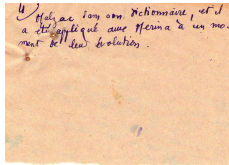 dans son Dictionnaire, et il
a été appliqué avec Merina à un mo-
ment de leur évolution.